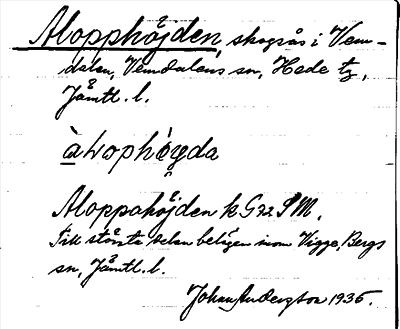 Ålopphöjden, skogsås i Vem-
dalen, Vemdalens sn, Hede tg,
Jämtl. l.
àLophöyda
Åloppahöjden k G 32 S M.
Till största delen belägen inom Vigge, Bergs
sn, Jämtl. l.
Johan Anderson 1936.